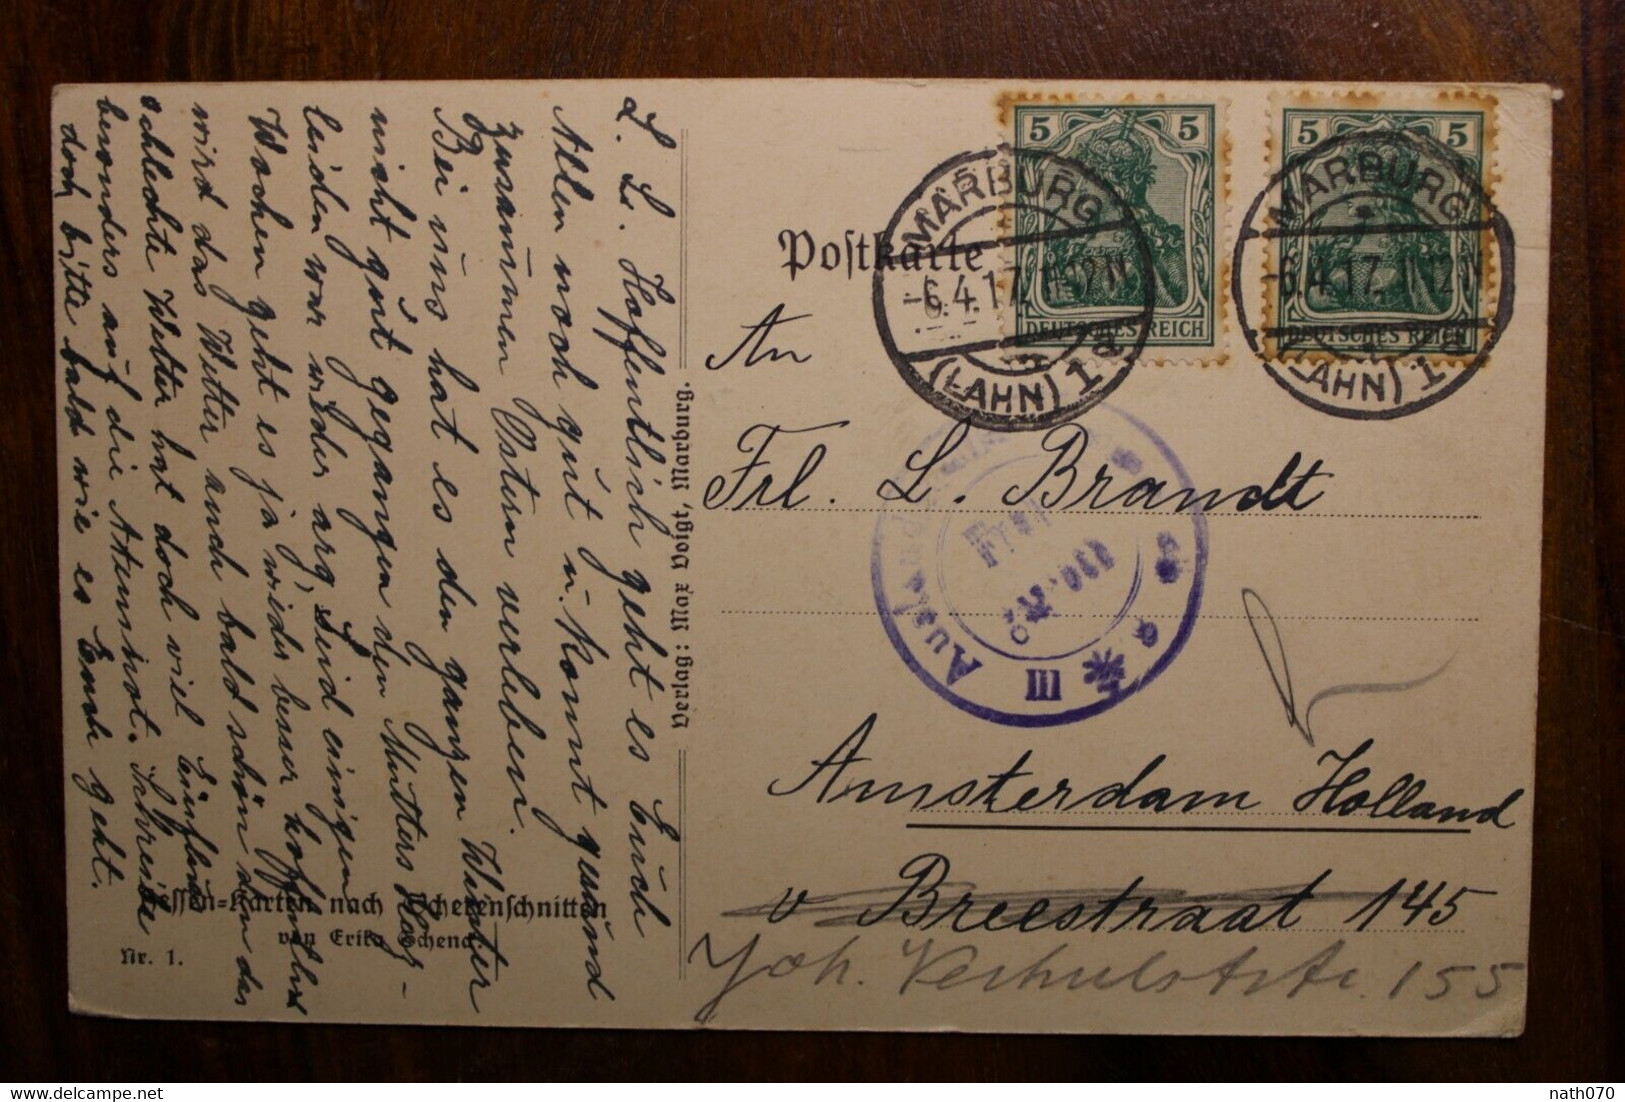 L. L. Hoffentlich geht es Euch
Allen noch gut u. könnt gesund
zusammen Ostern verleben.
Bei uns hat es den ganzen Winter
nicht gut gegangen den Mutters Mag-
leiden war wieder arg, Seid einigen
Wochen geht es ja wieder besser hoffentlich
wird das Wetter auch bald schön denn das
schlechte Wetter hat doch viel Einfluss
besonders auf die Atemnot. Schreibe
doch bitte bald wie es Euch geht.
Hessen-Karten nach Scherenschnitten
von Erika Schenck.
Nr. 1.
Verlag: Max Voigt, Marburg.
Postkarte
5 5
DEUTSCHES REICH
5 5
DEUTSCHES REICH
MARBURG
-6.4.17. 11-12N
(LAHN) 1 a
MARBURG
-6.4.17. 11-12N
(LAHN) 1
An
Frl. L. Brandt
III
Amsterdam Holland
v Breestraat 145
Joh. Verhulststr. 155
delcampe.net
nath070